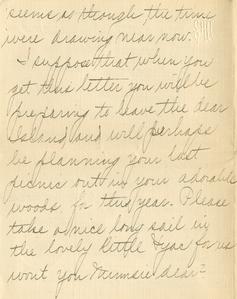 seems as through the time
were drawing near now.
I suppose that when you
get this letter you will be
preparing to leave the dear
Island, and will perhaps
be planning your last
picnic out in your adorable
woods for this year. Please
take a nice long sail in
the lovely little for us
wont you dear?